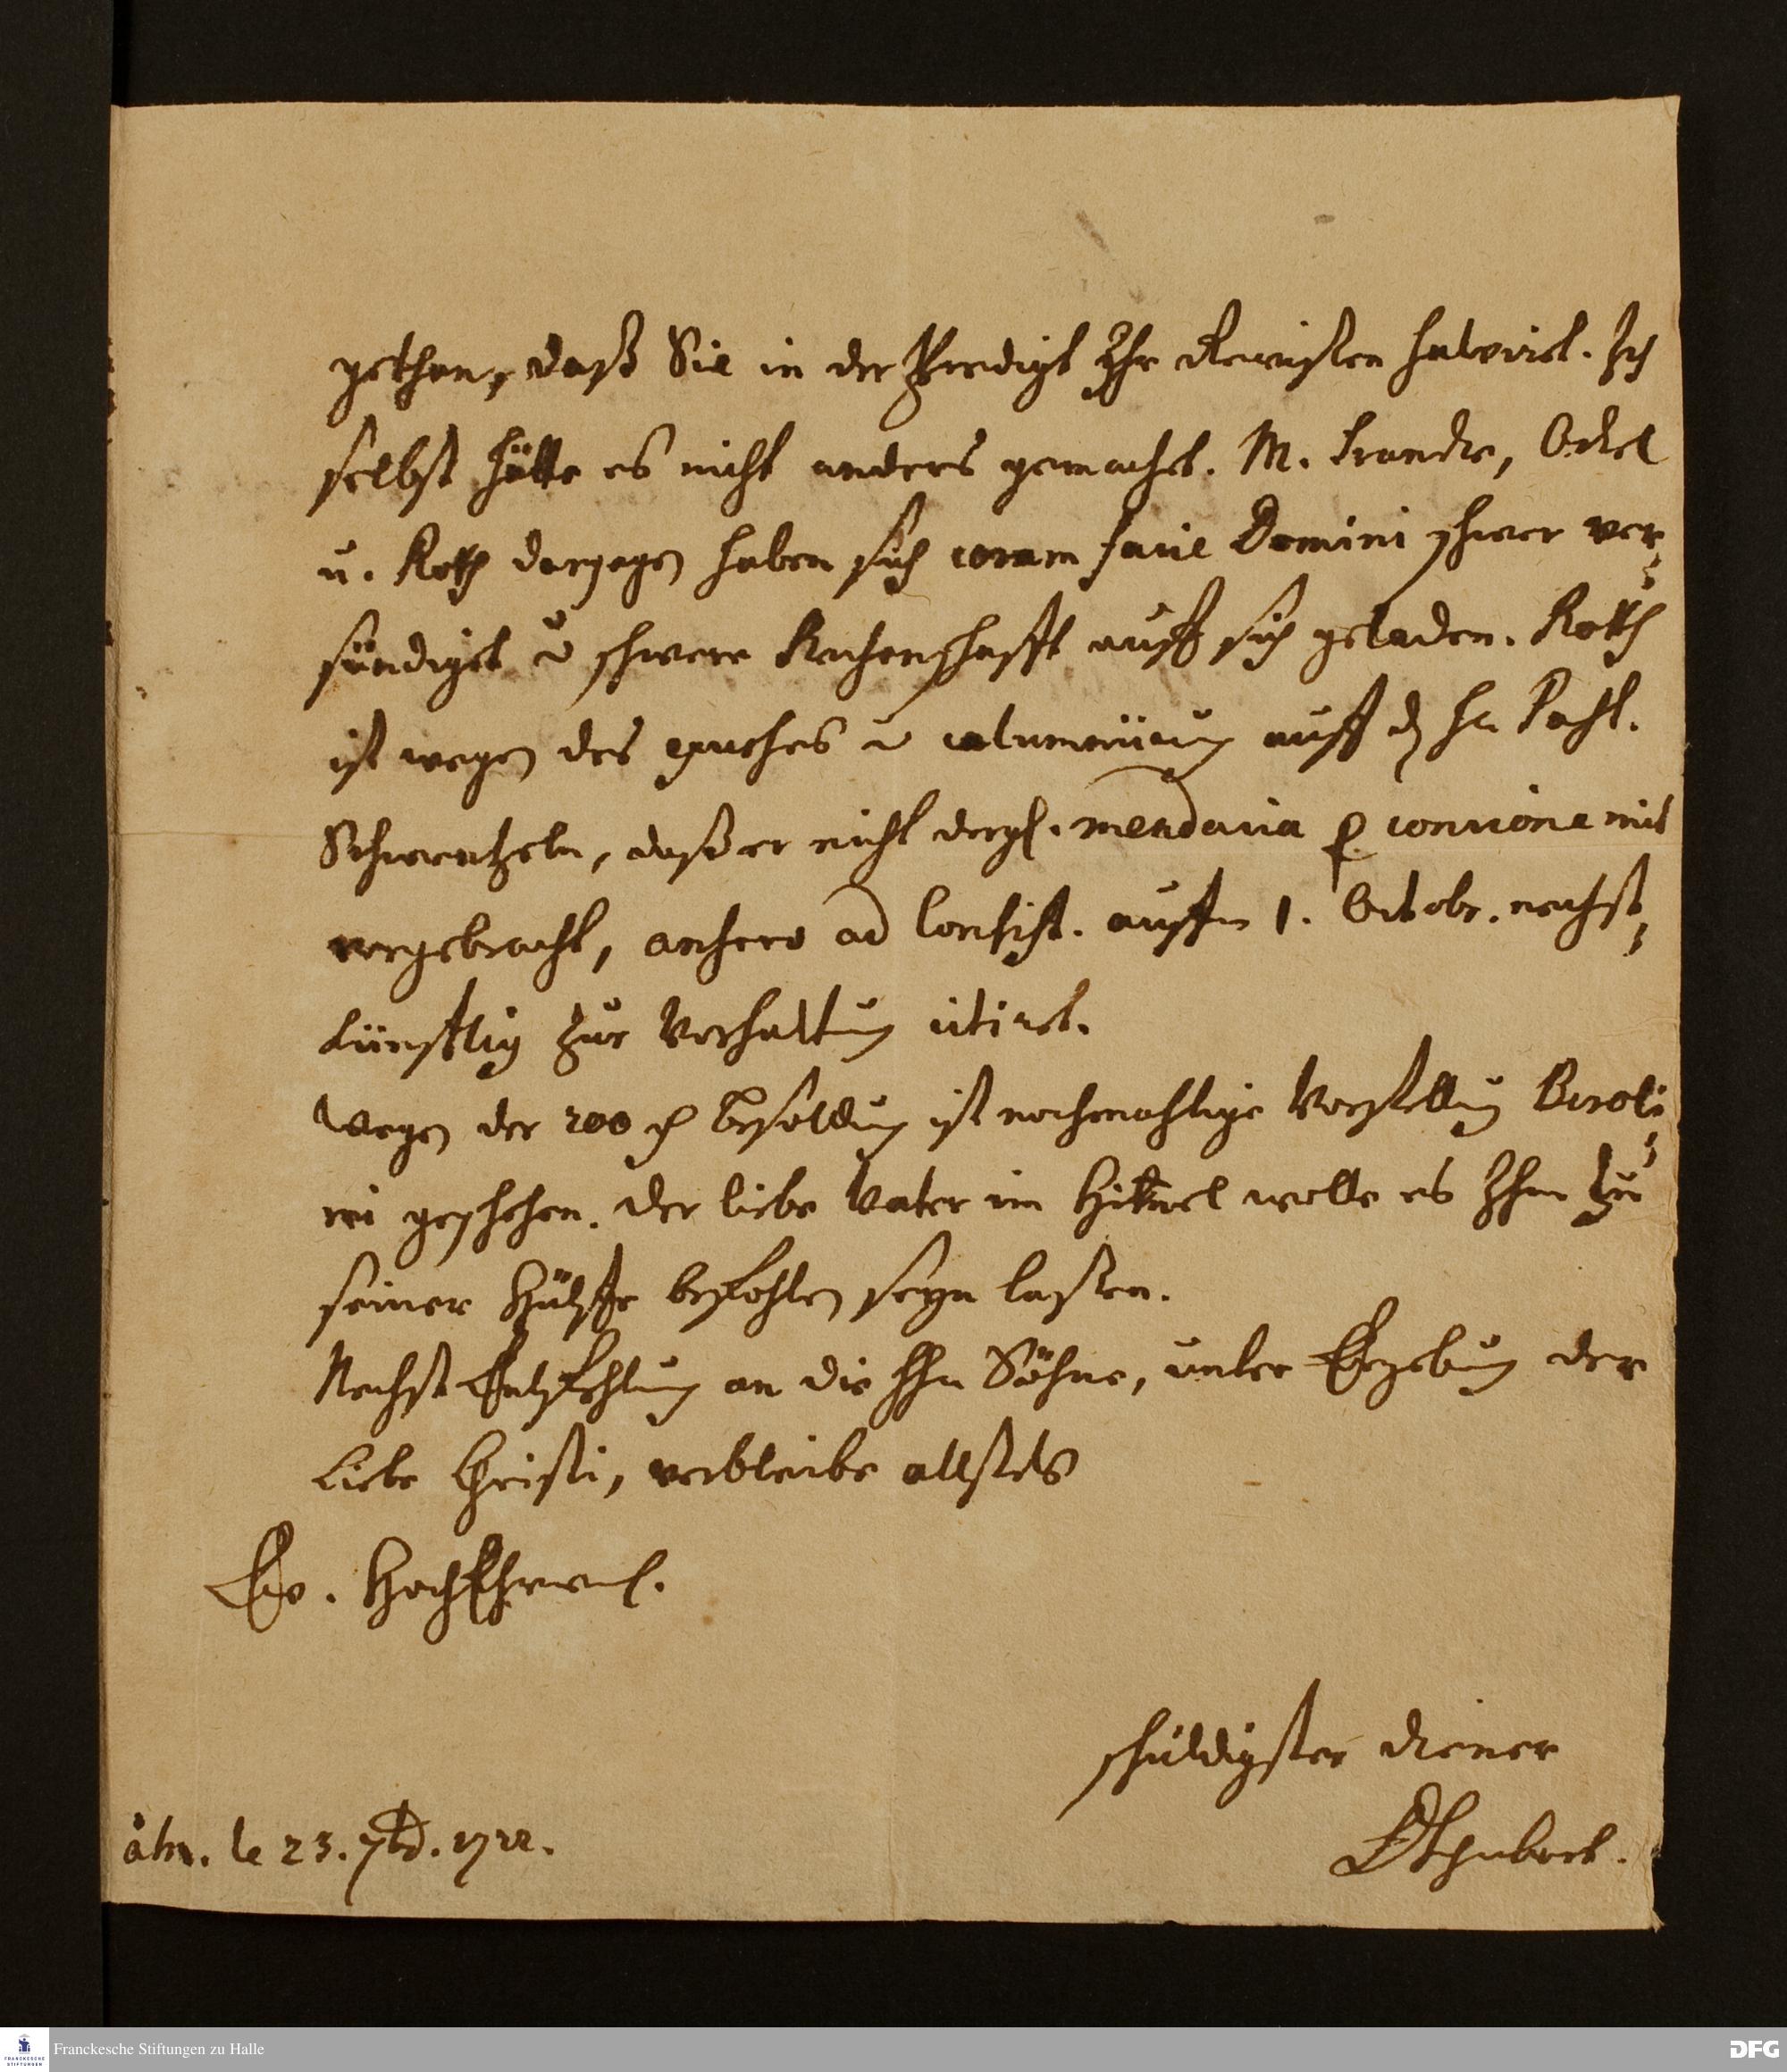 gethan, daß Sie in der Predigt Ihr Gewißen salvirt. Ich
selbst hätte es nicht anders gemachet. M. Francke, Odel
u. Roth dargegen haben sich coram facie Domini schwer ver-
sündiget u schwere Rechenschafft auff sich geladen. Roth
ist wegen des u calumniirung auff d H Past.
Schwentzeln, daß er nicht dergl. mendacia p concione mit
vorgebracht, anhero ad Consist. auffn 1. Octobr. nechst-
künfftig zur Verhaltung citiret.
Wegen der 200 Besoldung ist nochmahlige Vorstellung Beroli-
ni geschehen. der liebe Vater im Himel wolle es Ihm zu
seiner Hülffe befohlen seyn laßen.
Nechst Entpfehlung an die HHn Söhne, unter Ergebung der
Liebe Christi, verbleibe allstets
Ew. HochEhrwl.
schuldigster diener
le 23. 7br. 1722.
Franckesche Stiftungen zu Halle
FRANCKESCHE
STIFTUNGEN
DFG